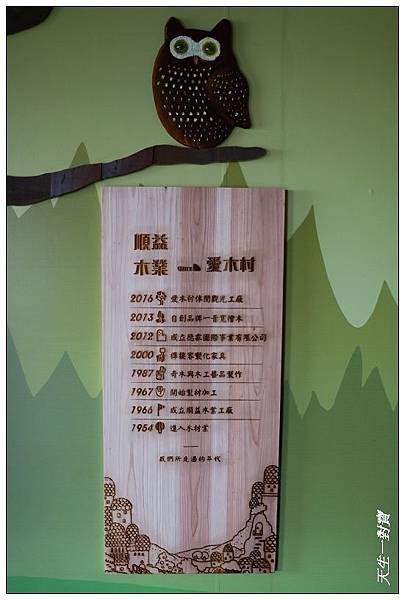 順益
木業 愛木村
2016 愛木村休閒觀光工廠
2013 自創品牌一吾寬檜木
2012 成立德豪國際事業有限公司
2000 傳統客製化家具
1987 奇木與木工藝品製作
1967 開始製材加工
1966 成立順益木業工廠
1954 進入木材業
我們所走過的年代
天生一對寶